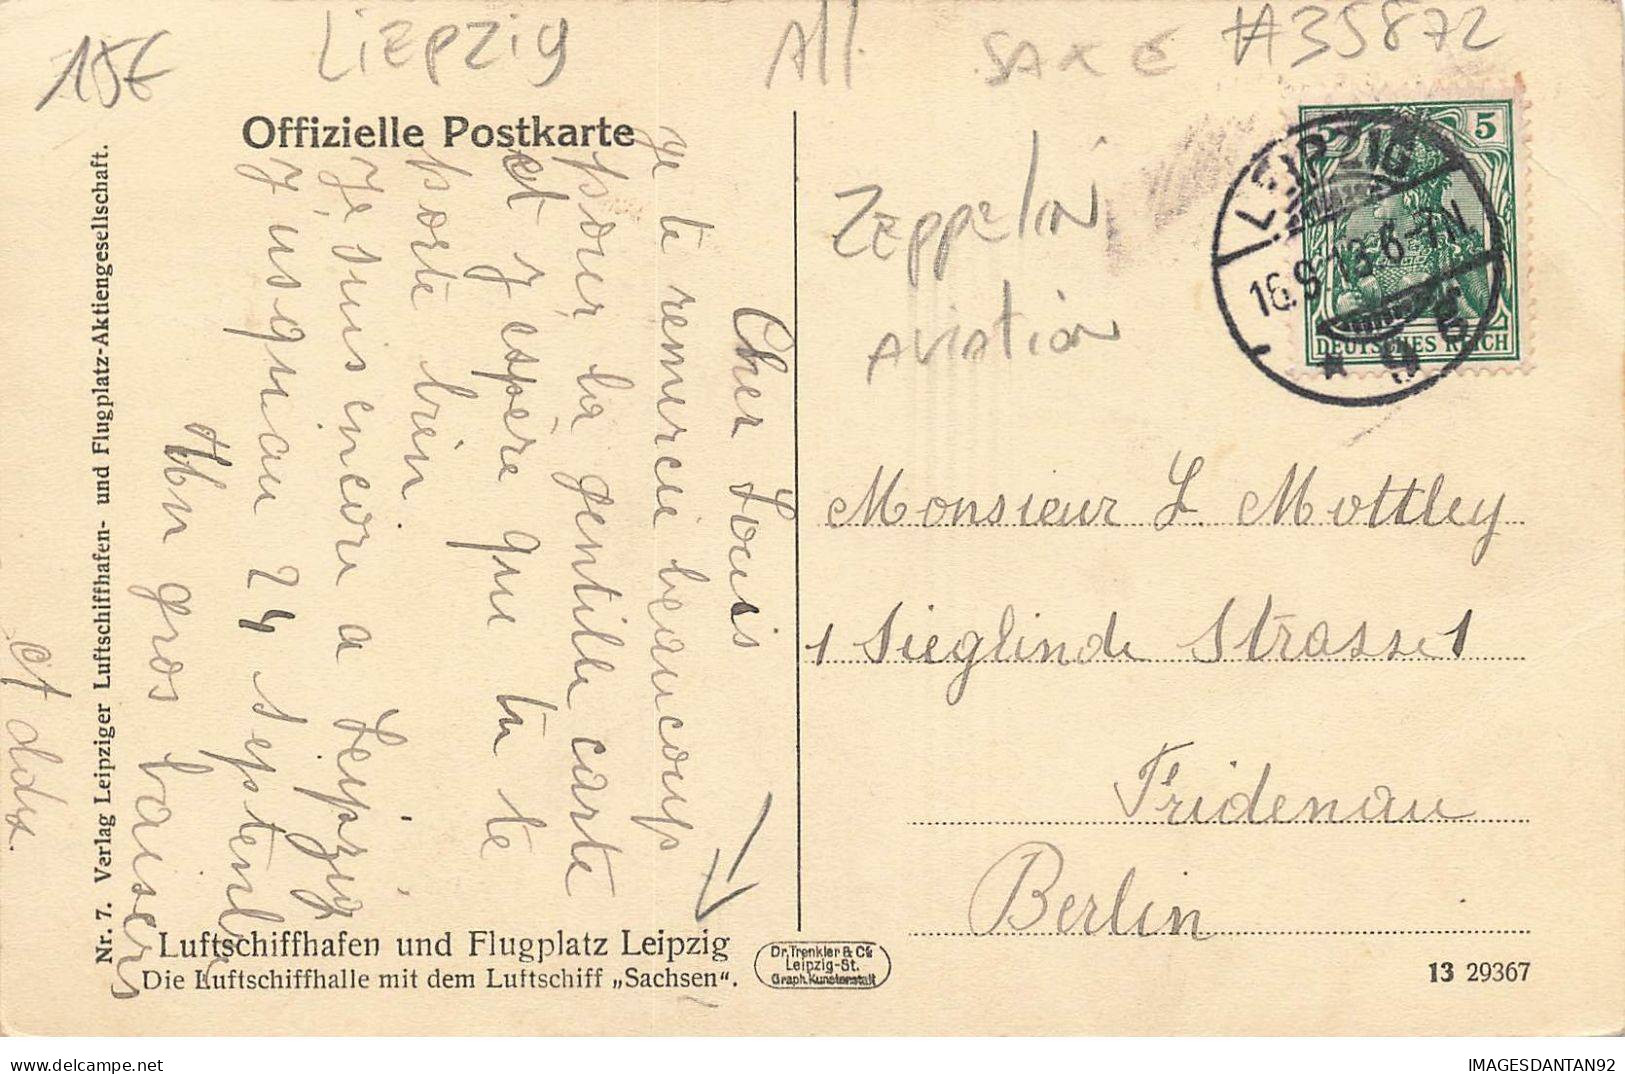 15€
Liepzig
All
SAXE
#35872
Offizielle Postkarte
Zeppelin
Aviation
5
DEUTSCHES REICH
LEIPZIG
16.9.13.6-7N.
* 9
Cher Louis
je te remercie beaucoup
pour la gentille carte
et j'espère que tu te
porte bien.
Je suis encore a Leipzig
jusqu'au 24 septembre
Un gros baisers
et ddux.
Monsieur L. Mottley
1 Sieglinde Strasse 1
Fridenau
Berlin
Nr. 7. Verlag Leipziger Luftschiffhafen- und Flugplatz-Aktiengesellschaft.
Luftschiffhafen und Flugplatz Leipzig
Die Luftschiffhalle mit dem Luftschiff „Sachsen“.
Dr. Trenkler & Co.
Leipzig-St.
Graph. Kunstanstalt
13 29367
IMAGESDANTAN92